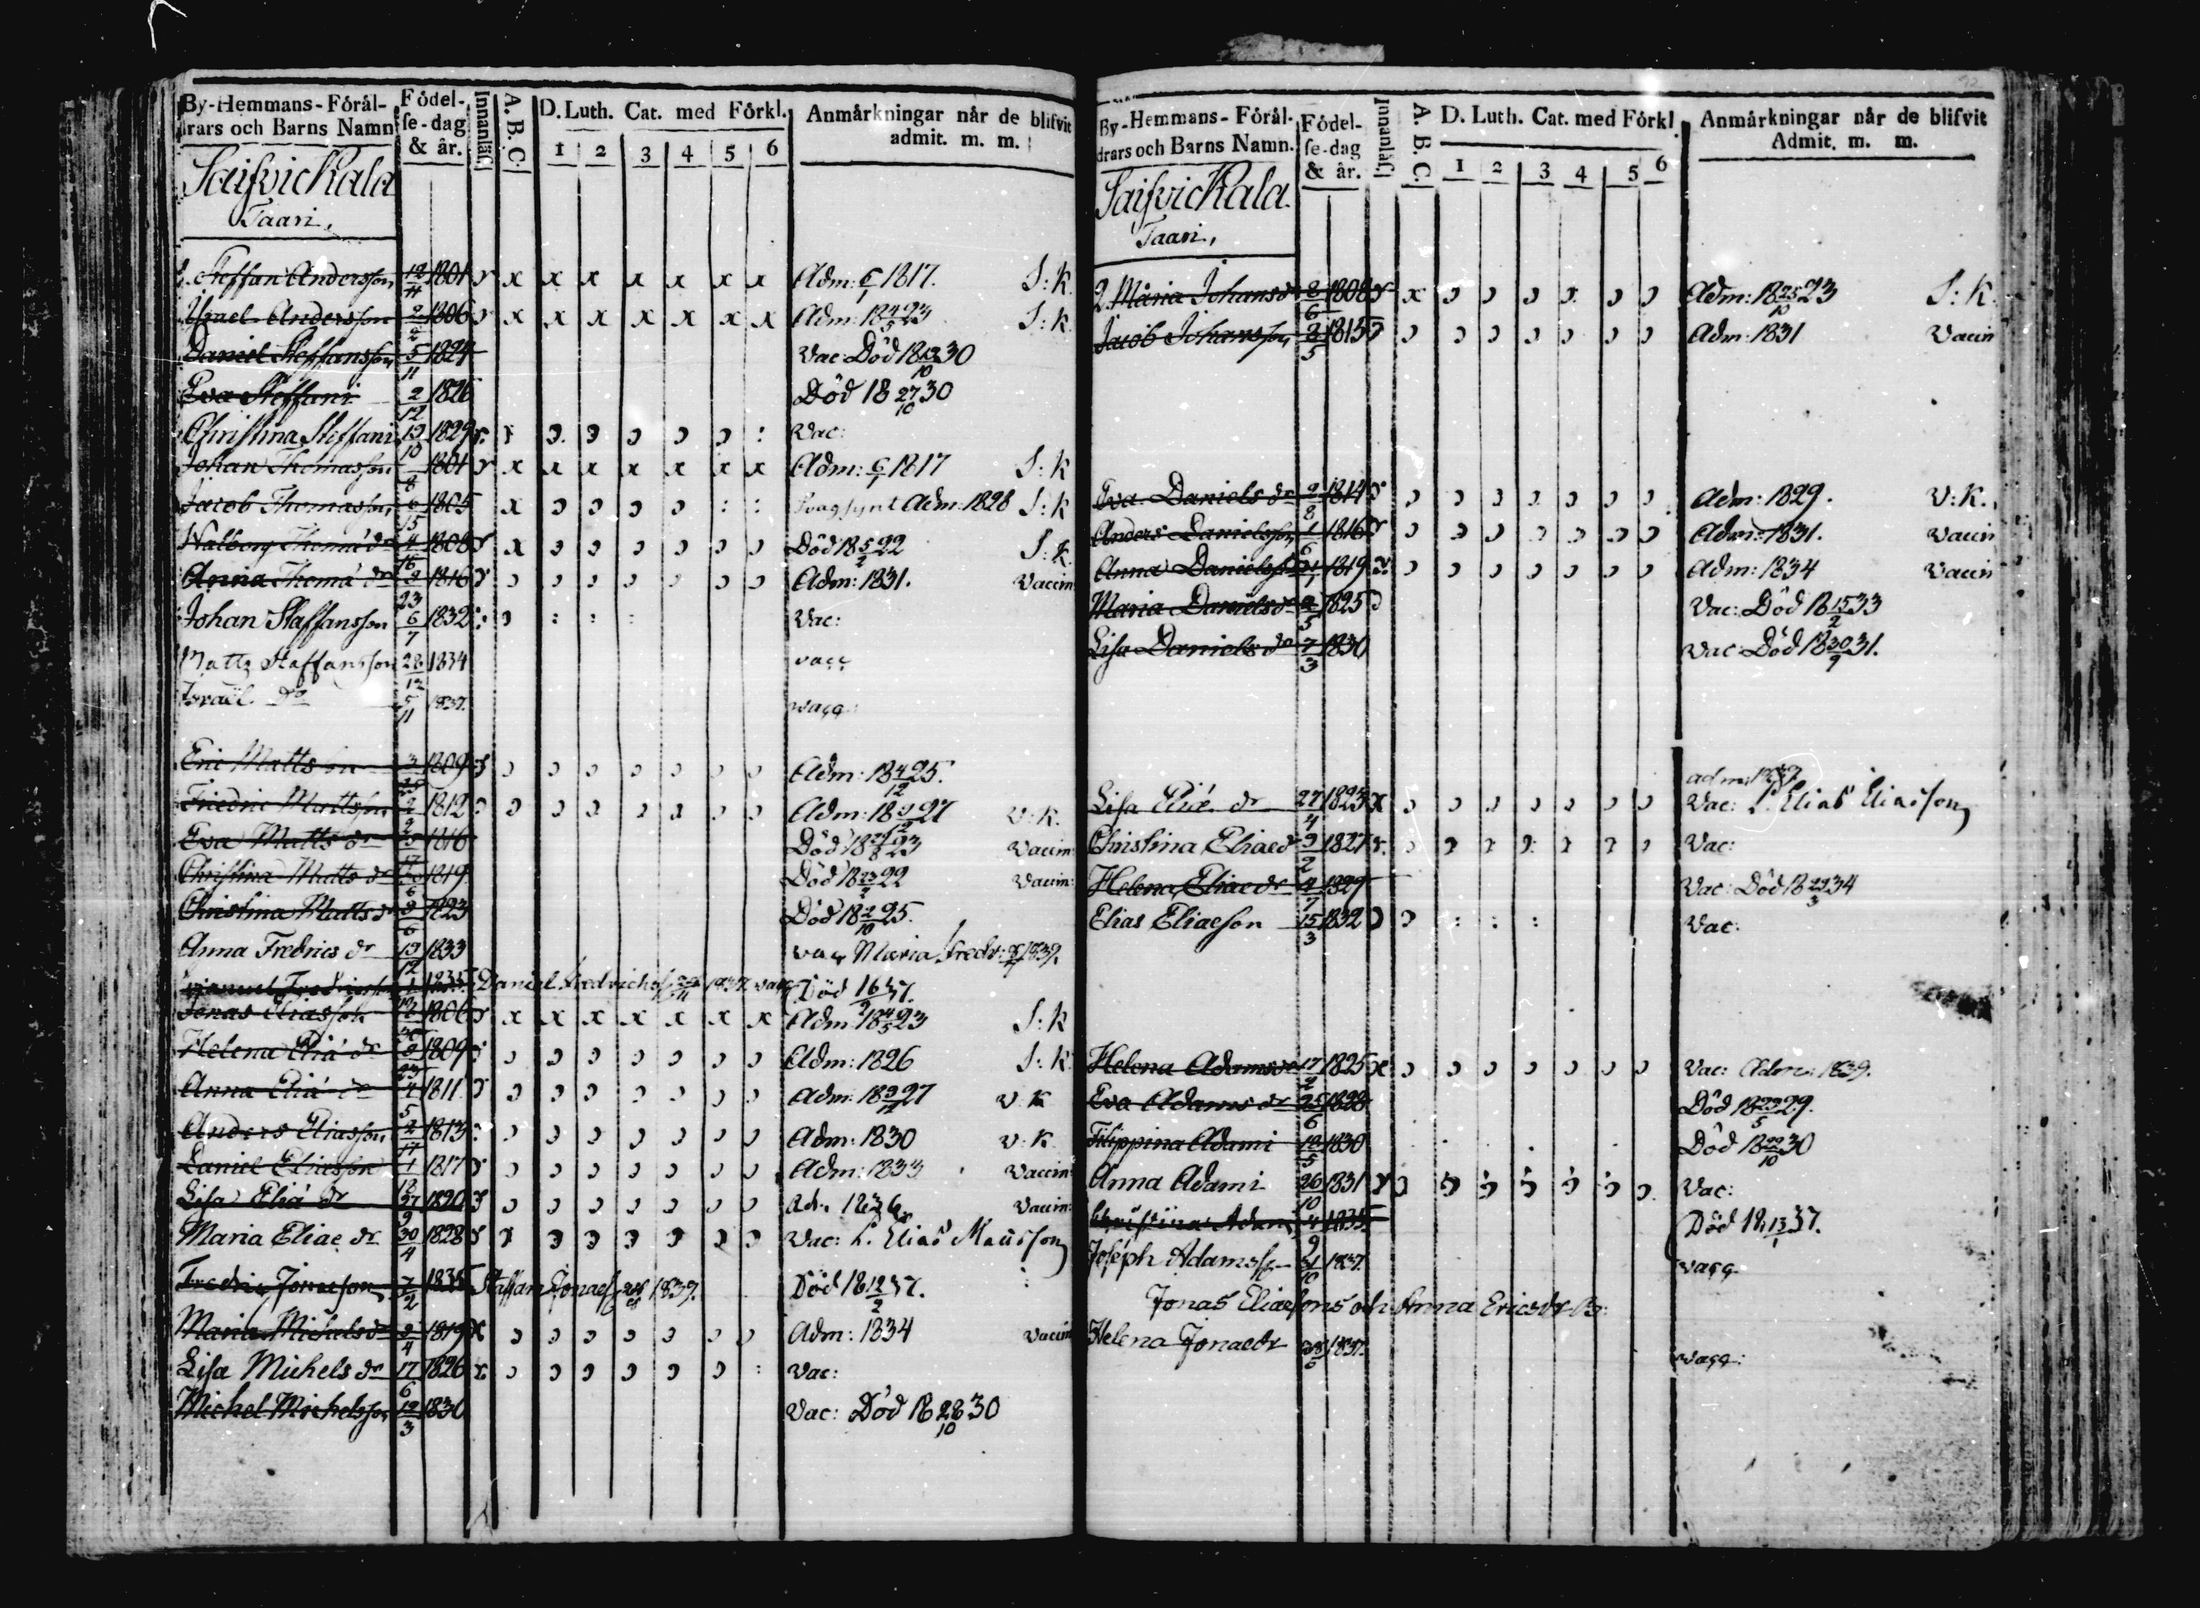 By-Hemmans-Förål-
drars och Barns Namn
Födel-
se-dag
& år.
Innanläs.
A. B. C.
D. Luth. Cat. med Förkl.
1 2 3 4 5 6
Anmårkningar når de blifvit
admit. m. m.
Saifvickala
Taari.
Steffan Andersson 12/11 1801 x x x x x x x Adm: 6/1 1817. S:K.
Ysrael Andersson 1806 x x x x x x x Adm: 18 24/5 23 S:K.
Daniel Steffansson 5/11 1824 Vac Död 18 30
Eva Steffani 2/12 1826 Död 18 27/10 30
Christina Steffani 19/10 1829 Vac:
Johan Thomasson 1801 x x x x x x x Adm: 6/1 1817 S:K
Jacob Thomasson 1805 x Svagsynt Adm: 1828 S:K
Walborg Thomæ dr 1808 x Död 18 5/2 22 S:K.
Anna Thomæ dr 1816 Adm: 1831. Vaccin
Johan Staffansson 6/7 1832 Vac:
Matts Staffansson 28/12 1834 vacc
Israël Do 5/11 1837. vacc:
Eric Mattsson 1809 Adm: 18 4/12 25.
Fredric Mattsson 1812 Adm: 18 27 V:K.
Eva Matts dr 1816 Död 18 23 Vaccin:
Christina Matts dr 1819 Död 18 22 Vaccin:
Christina Matts dr 1823 Död 18 25.
Anna Fredrics dr 19/12 1833 vacc Maria Fredr: 1839.
1835. Daniel Fredrichs 1837 vacc Död 16/2 37.
Jonas Eliasson 1806 x x x x x x x Adm 18 24/5 23 S:K
Helena Eliæ dr 1809 Adm: 1826 S:K
Anna Eliæ dr 1811 Adm: 18 27 V.K
Anders Eliasson 1813 Adm: 1830 V.K.
Daniel Eliasson 1817 Adm: 1833 Vaccin
Lisa Eliæ dr 27/9 1820 Ad. 1836 Vaccin:
Maria Eliae dr 30/4 1828 Vac: L. Elias
Fredric Jonæson 7/2 1835 Staffan Jonæs 1839. Död 18 12/2 37.
Maria Michels dr 1819 x Adm: 1834 Vaccin
Lisa Michels dr 17/6 1826 Vac:
Michel Michelsson 19/3 1830 Vac: Död 18 28/10 30
By-Hemmans-Förål-
drars och Barns Namn.
Födel-
se-dag
& år.
Innanläs.
A. B. C.
D. Luth. Cat. med Förkl
1 2 3 4 5 6
Anmårkningar når de blifvit
Admit. m. m.
Saifvickala.
Taari.
2. Maria Johans dr 1808 x Adm: 18 25/10 23 S:K.
Jacob Johansson 8/5 1815 Adm: 1831 Vaccin
Eva Daniels dr 1814 Adm: 1829. V:K.
Anders Danielsson 1816 Adm: 1831. Vaccin
Anna Daniels 1819 Adm: 1834 Vaccin
Maria Daniels dr 1825 Vac: Död 18 15/2 33
Lisa Daniels dr 7/3 1830 Vac: Död 18 30/9 31.
Lisa Eliæ dr 27/4 1823 x Vac: L. Elias Eliasson
Christina Eliae dr 9/2 1827 Vac:
Helena Eliae dr 4/7 1829 Vac: Död 18 34
Elias Eliaeson 15/3 1832 Vac:
Helena Adams dr 17/2 1825 x Vac: Adm: 1839.
Eva Adams dr 25/6 1828 Död 18 29.
Filippina Adami 1830 Död 18 30
Anna Adami 26/10 1831 Vac:
Christina Adam 4/9 1835 Död 18 13/1 37.
Joseph Adamss 21/10 1837. vacc
Jonas Eliaesons och Anna Ericsdr B:
Helena Jonaedr 1837. vacc: